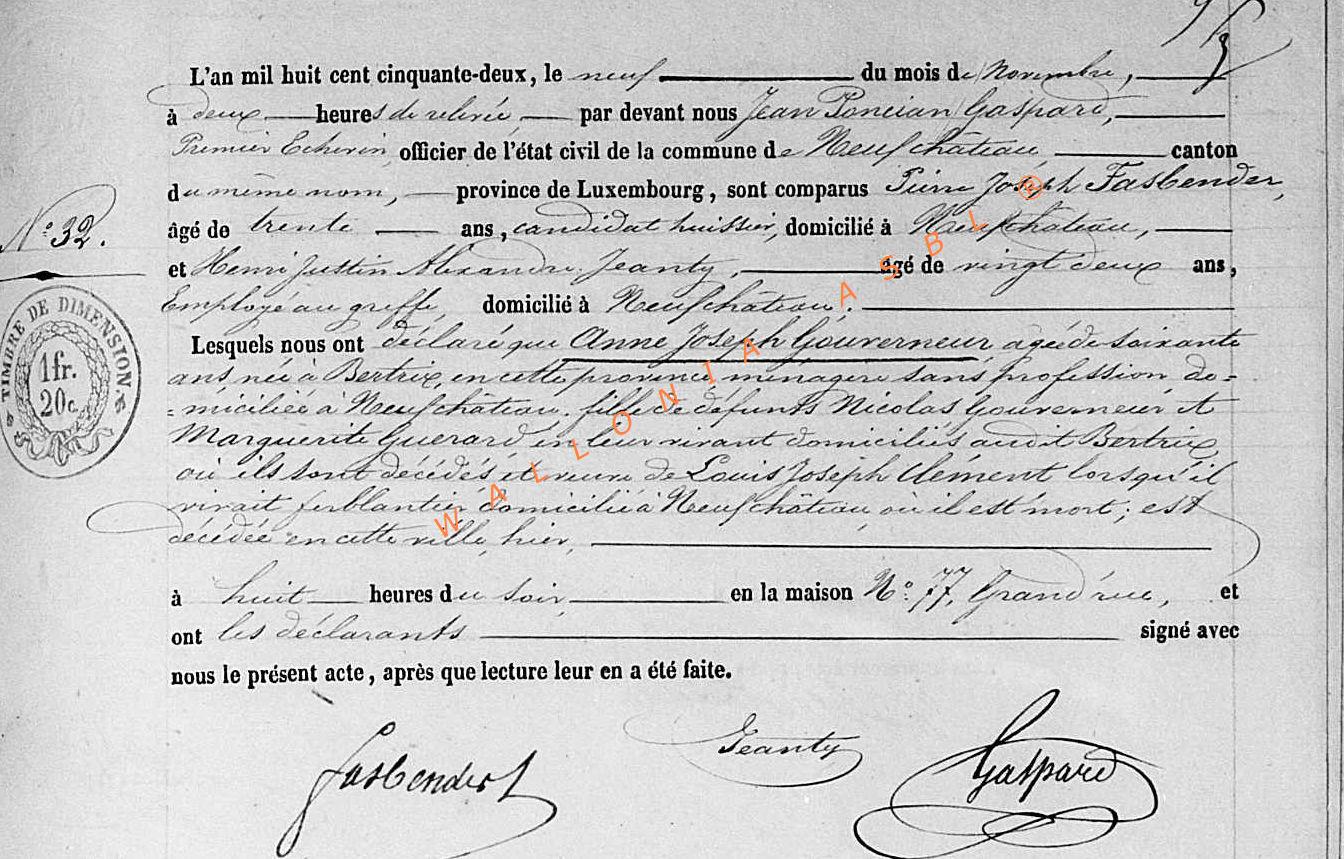 L'an mil huit cent cinquante-deux, le neuf du mois de Novembre,
à deux heures de relevée, par devant nous Jean Poncian Gaspard,
Premier Echevin, officier de l'état civil de la commune de Neufchâteau, canton
du même nom, province de Luxembourg, sont comparus Pierre Joseph Fasbender,
N.º 32.
âgé de trente ans, candidat huissier, domicilié à Neufchâteau,
et Henri Justin Alexandre Jeanty, âgé de vingt deux ans,
Employé au greffe, domicilié à Neufchâteau.
TIMBRE DE DIMENSION
1fr.
20c.
Lesquels nous ont déclaré que Anne Joseph Gouverneur, agée de soixante
ans née à Bertrix, en cette province, ménagere sans profession do=
=miciliée à Neufchâteau, fille de défunts Nicolas Gouverneur et
Marguerite Guerard en leur vivant domiciliés audit Bertrix,
où ils sont décédés et veuve de Louis Joseph Clément lorsqu'il
vivait ferblantier domicilié à Neufchâteau, où il est mort; est
décédée en cette ville, hier,
à huit heures du soir, en la maison Nº. 77, Grand'rue, et
ont les déclarants signé avec
nous le présent acte, après que lecture leur en a été faite.
Fasbender Jeanty Gaspard
WALLONIA ASBL ®